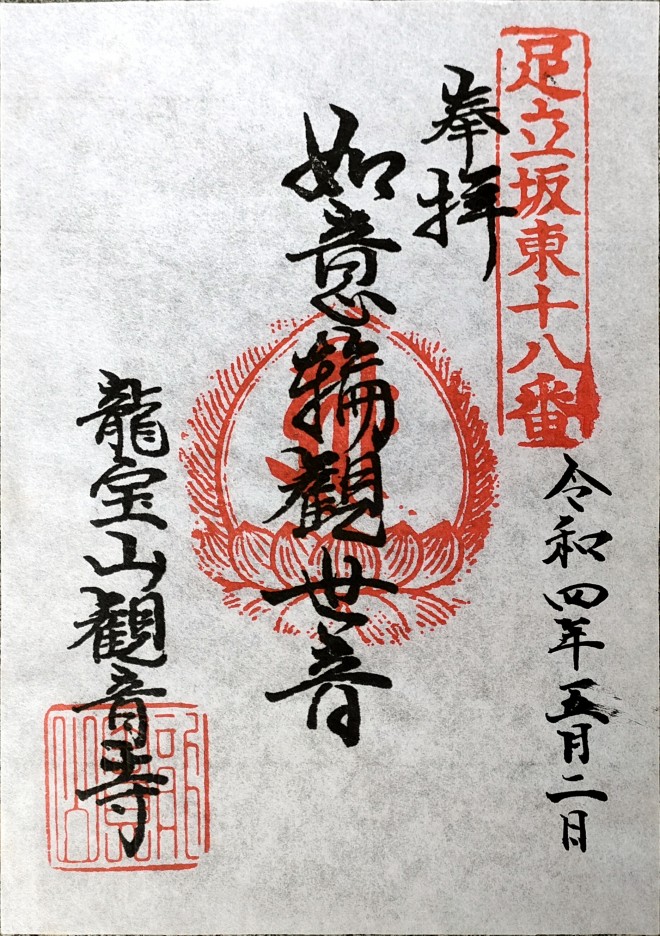 足立坂東十八番
奉拝
令和四年五月二日
如意輪觀世音
龍宝山観音寺